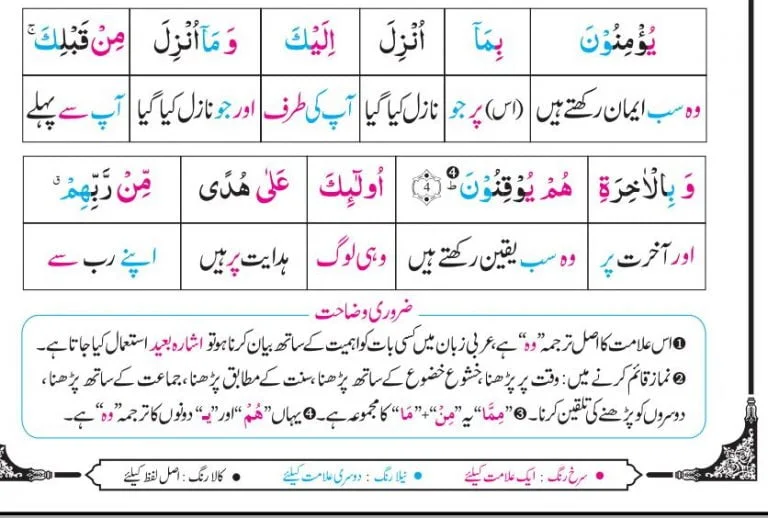 يُؤْمِنُوْنَ بِمَآ اُنْزِلَ اِلَيْكَ وَ مَآ اُنْزِلَ مِنْ قَبْلِكَ ۚ
وہ سب ایمان رکھتے ہیں (اس) پر جو نازل کیا گیا آپ کی طرف اور جو نازل کیا گیا آپ سے پہلے
وَ بِالْاٰخِرَةِ هُمْ يُوْقِنُوْنَ ❹ؕ 4 اُولٰٓئِكَ عَلٰى هُدًى مِّنْ رَّبِّهِمْ ۙ
اور آخرت پر وہ سب یقین رکھتے ہیں وہی لوگ ہدایت پر ہیں اپنے رب سے
ضروری وضاحت
❶ اس علامت کا اصل ترجمہ "وہ" ہے، عربی زبان میں کسی بات کو اہمیت کے ساتھ بیان کرنا ہو تو اشارہ بعید استعمال کیا جاتا ہے۔
❷ نماز قائم کرنے میں: وقت پر پڑھنا، خشوع خضوع کے ساتھ پڑھنا، سنت کے مطابق پڑھنا، جماعت کے ساتھ پڑھنا،
دوسروں کو پڑھنے کی تلقین کرنا۔ ❸ "مِمَّا" یہ "مِنْ" + "مَا" کا مجموعہ ہے۔ ❹ یہاں "هُمْ" اور "یـ" دونوں کا ترجمہ "وہ" ہے۔
● سرخ رنگ : ایک علامت کیلئے ● نیلا رنگ : دوسری علامت کیلئے ● کالا رنگ : اصل لفظ کیلئے